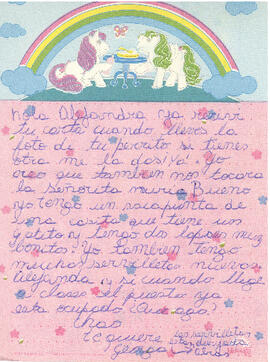 Hola Alejandra ya recivi
tu carta cuando lleves la
foto de tu perrito si tienes
otra me la das! Ya! Yo
creo que tambien nos tocara
la Señorita maria Bueno
yo tengo un sacapunta de
una casita que tiene un
gatito y tengo dos lapices muy
bonitos. Yo tambien tengo
muchas servilletas nuevas
Alejandra y si cuando llege
a clase el puesto ya
esta ocupado
Chao
te quiere
las servilletas